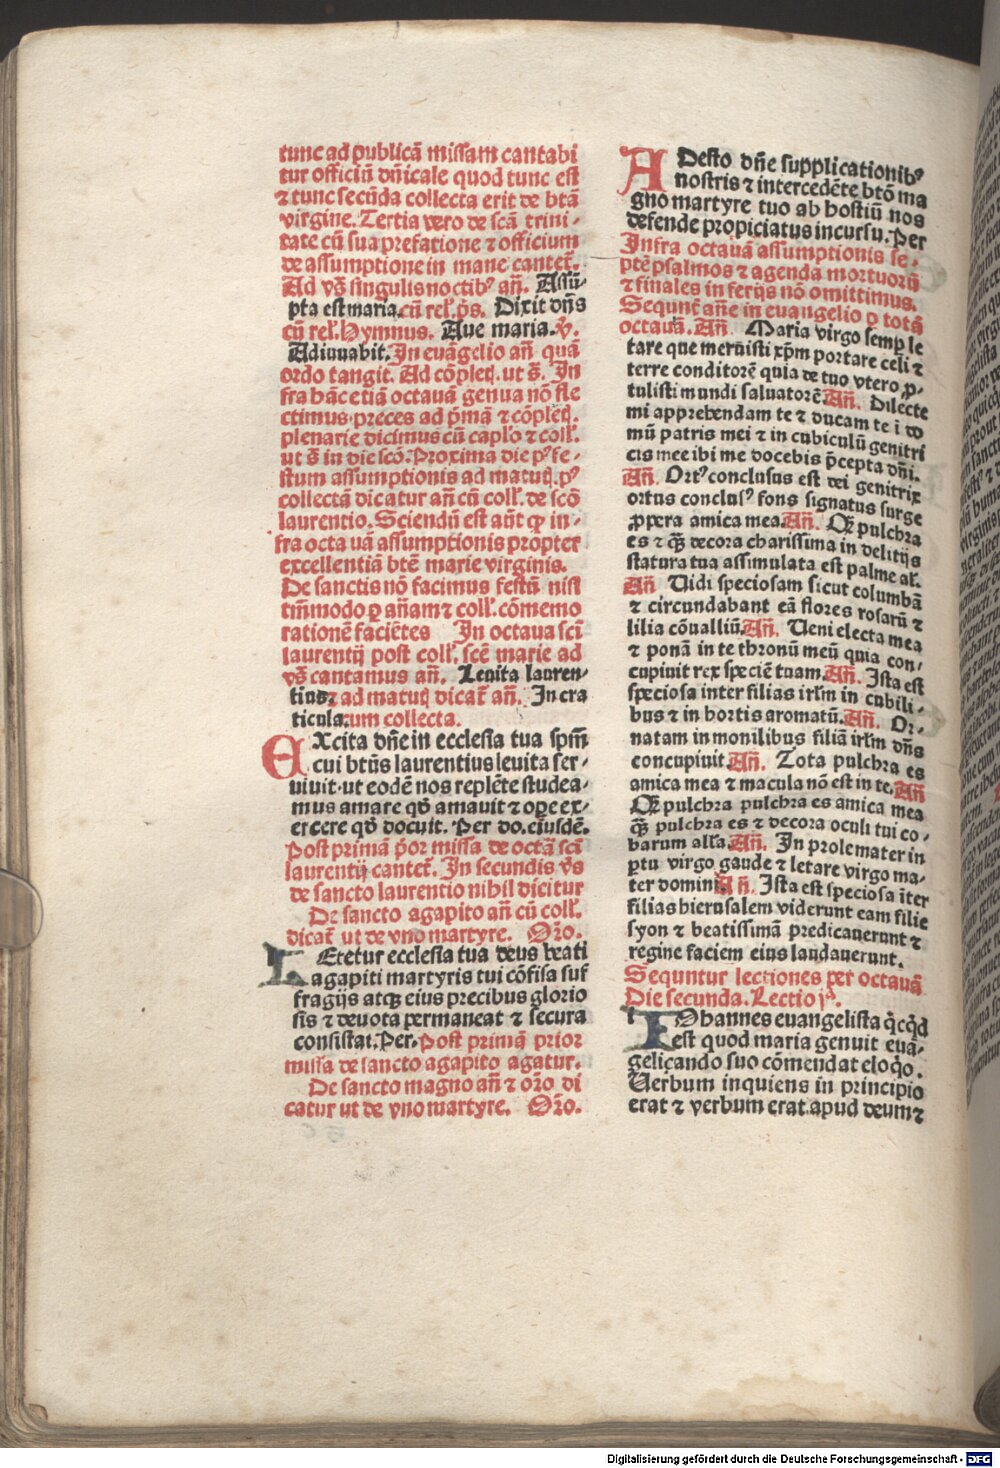 tunc ad publicā missam cantabi
tur officiū dn̄icale quod tunc est
⁊ tunc secūda collecta erit de btā
virgine. Tertia vero de scā trini-
tate cū sua prefatione ⁊ officium
de assumptione in mane cantet̄.
Ad vs̄ singulis noctibꝰ an̄. Assū-
pta est maria. cū rel'. ps̄. Dixit dn̄s
cū rel'. Hymnus. Aue maria. v̄.
Adiuuabit. In euāgelio an̄ quā
ordo tangit. Ad cōpleꝷ. ut s̄. In
fra hāc etiā octauā genua nō fle
ctimus preces ad p̄mā ⁊ cōpleꝷ.
plenarie dicimus cū caplo ⁊ coll'.
ut s̄ in die scō. Proxima die pꝰ fe-
stum assumptionis ad matuꝷ. pꝰ
collectā dicatur an̄ cū coll'. de scō
laurentio. Sciendū est aūt ꝙ in-
fra octauā assumptionis propter
excellentiā btē marie virginis.
De sanctis nō facimus festū nisi
tm̄modo ꝑ an̄am ⁊ coll'. cōmemo
rationē faciētes In octaua scī
laurentij post coll'. scē marie ad
vs̄ cantamus an̄. Leuita lauren-
tius ⁊ ad matuꝷ dicat̄ an̄. In cra
ticula. cum collecta.
EXcita dn̄e in ecclesia tua spm̄
cui btūs laurentius leuita ser-
uiuit. ut eodē nos replēte studea-
mus amare qd̄ amauit ⁊ oꝑe ex-
ercere qd̄ docuit. Per do. eiusdē.
Post primā p̄or missa de octā scī
laurentij cantet̄. In secundis vs̄
de sancto laurentio nihil dicitur
De sancto agapito an̄ cū coll'.
dicat̄ ut de vno martyre. Or̄o.
LEtetur ecclesia tua deus beati
agapiti martyris tui cōfisa suf
fragijs atqꝫ eius precibus glorio
sis ⁊ deuota permaneat ⁊ secura
consistat. Per. Post primā prior
missa de sancto agapito agatur.
De sancto magno an̄ ⁊ or̄o di
catur ut de vno martyre. Or̄o.
ADesto dn̄e supplicationibꝰ
nostris ⁊ intercedēte btō ma
gno martyre tuo ab hostiū nos
defende propiciatus incursu. Per
Infra octauā assumptionis se-
ptē psalmos ⁊ agenda mortuorū
⁊ finales in ferijs nō omittimus.
Sequnt̄ an̄e in euangelio ꝑ totā
octauā. An̄. Maria virgo semꝑ le
tare que meruisti xp̄m portare celi ⁊
terre conditorē quia de tuo vtero ꝓ-
tulisti mundi saluatorē An̄. Dilecte
mi apprehendam te ⁊ ducam te ī do
mū patris mei ⁊ in cubiculū genitri
cis mee ibi me docebis p̄cepta dn̄i.
An̄. Ortꝰ conclusus est dei genitrix
ortus conclusꝰ fons signatus surge
ꝓpera amica mea. An̄. Qꝫ pulchra
es ⁊ qꝫ decora charissima in delitijs
statura tua assimulata est palme al'.
An̄ Uidi speciosam sicut columbā
⁊ circundabant eā flores rosarū ⁊
lilia cōualliū. An̄. Ueni electa mea
⁊ ponā in te thronū meū quia con-
cupiuit rex speciē tuam. An̄. Ista est
speciosa inter filias irl̄m in cubili-
bus ⁊ in hortis aromatū. An̄. Or-
natam in monilibus filiā irl̄m dn̄s
concupiuit. An̄. Tota pulchra es
amica mea ⁊ macula nō est in te. An̄
Qꝫ pulchra pulchra es amica mea
qꝫ pulchra es ⁊ decora oculi tui co-
barum al'la. An̄. In prole mater in
ꝑtu virgo gaude ⁊ letare virgo ma-
ter domini. An̄. Ista est speciosa īter
filias hierusalem viderunt eam filie
syon ⁊ beatissimā predicauerunt ⁊
regine faciem eius laudauerunt.
Sequntur lectiones per octauā
Die secunda. Lectio jᵃ.
IOhannes euangelista q̇cq̇d
est quod maria genuit euā-
gelicando suo cōmendat eloq̇o.
Uerbum inquiens in principio
erat ⁊ verbum erat apud deum ⁊
Digitalisierung gefördert durch die Deutsche Forschungsgemeinschaft - DFG